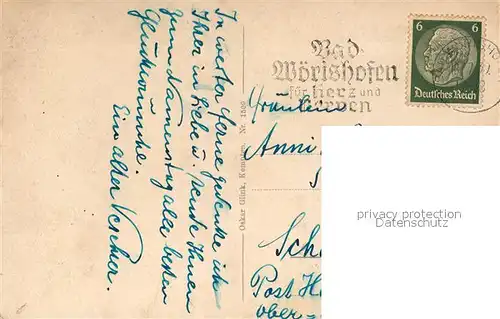 In weiter Ferne gedenke ich
Ihrer in Liebe u. sende Ihnen
zum Namenstag alle besten
Glückwünsche.
Ein alter Verehrer.
Oskar Glink, Kempten. Nr. 1809
Bad
Wörishofen
für Herz und
Nerven
6 6
Deutsches Reich
Fräulein
Anni
Sch
Post H
Ober-
privacy protection
Datenschutz